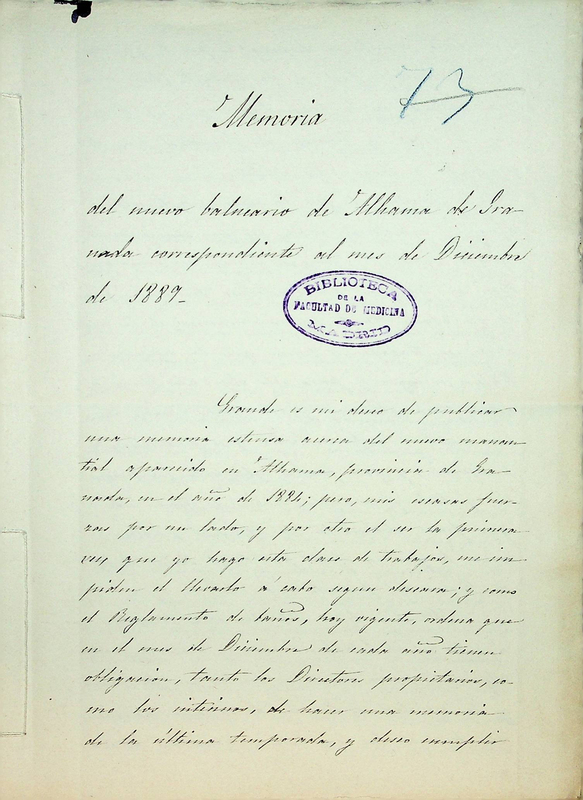 73
Memoria
del nuevo balneario de Alhama de Gra-
nada correspondiente al mes de Diciembre
de 1889_
BIBLIOTECA
DE LA
FACULTAD DE MEDICINA
MADRID
Grande es mi deseo de publicar
una memoria estensa acerca del nuevo manan
tial aparecido en Alhama, provincia de Gra-
nada, en el año de 1884; pero, mis escasas fuer-
zas por un lado, y por otro el ser la primera
vez que yo hago esta clase de trabajos, me im
piden el llevarlo á cabo segun deseara; y como
el Reglamento de baños, hoy vigente, ordena que
en el mes de Diciembre de cada año tienen
obligacion, tanto los Directores propietarios, co-
mo los interinos, de hacer una memoria
de la última temporada, y deseo cumplir